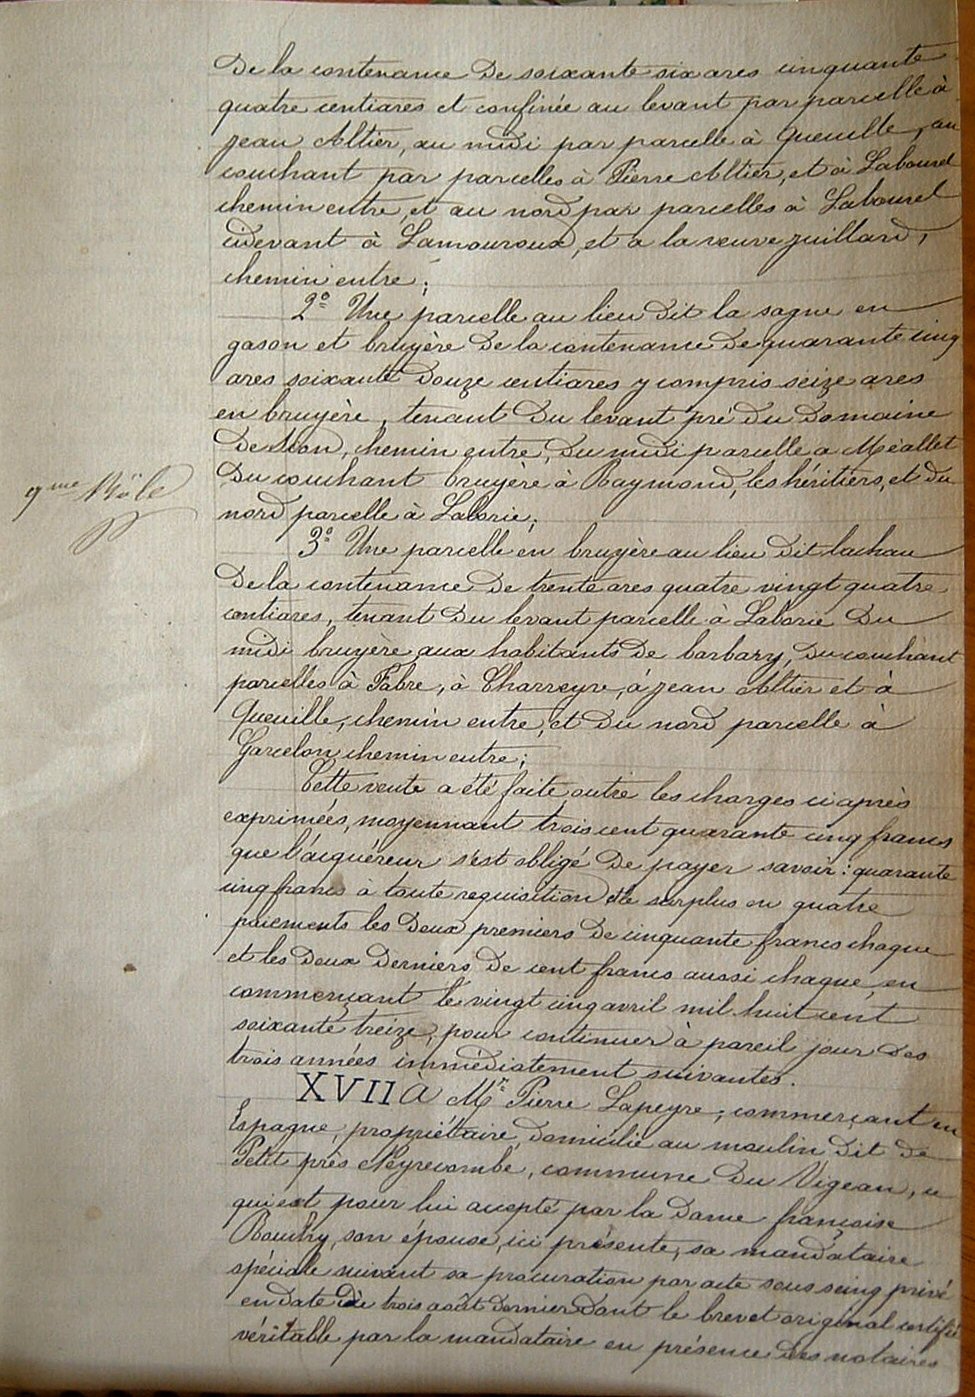 De la contenance De soixante six ares cinquante
quatre centiares et confinée au levant par parcelle à
Jean Altier, au midi par parcelle à Queuille, au
couchant par parcelles à Pierre Altier, et à Labourel
chemin entre, et au nord par parcelles à Labourel
cidevant à Lamouroux, et à la veuve Juillard,
chemin entre;
2° Une parcelle au lieu dit la sagne en
gason et bruyère De la contenance De quarante cinq
ares soixante Douze centiares y compris seize ares
en bruyère, tenant Du levant pré Du Domaine
De Sion, chemin entre, Du midi parcelle a Méallet
Du couchant bruyère à Raymond, les héritiers, et du
nord parcelle à Laborie;
7me Rôle
3° Une parcelle en bruyère au lieu dit lachau
De la contenance De trente ares quatre vingt quatre
centiares, tenant Du levant parcelle à Laborie Du
midi bruyère aux habitants De barbary, Du couchant
parcelles à Fabre, à Charreyre, à Jean Altier et à
Queuille, chemin entre, et Du nord parcelle à
Garcelon chemin entre;
Cette vente a été faite outre les charges ci après
exprimées, moyennant trois cent quarante cinq francs
que l'acquéreur s'est obligé De payer savoir: quarante
cinq francs à toute requisition et le surplus en quatre
paiements les Deux premiers De cinquante francs chaque
et les Deux Derniers De cent francs aussi chaque, en
commençant le vingt cinq avril mil huit cent
soixante treize, pour continuer à pareil jour Des
trois années immédiatement suivantes.
XVII à Mr Pierre Lapeyre, commerçant en
Espagne, propriétaire, domicilié au moulin dit De
Petit près Neyrecombe, commune Du Vigean, ce
qui est pour lui accepté par la Dame françoise
son épouse, ici présente, sa mandataire
spéciale suivant sa procuration par acte sous seing privé
en Date Du trois août Dernier Dont le brevet original certifié
véritable par la mandataire en présence Des notaires